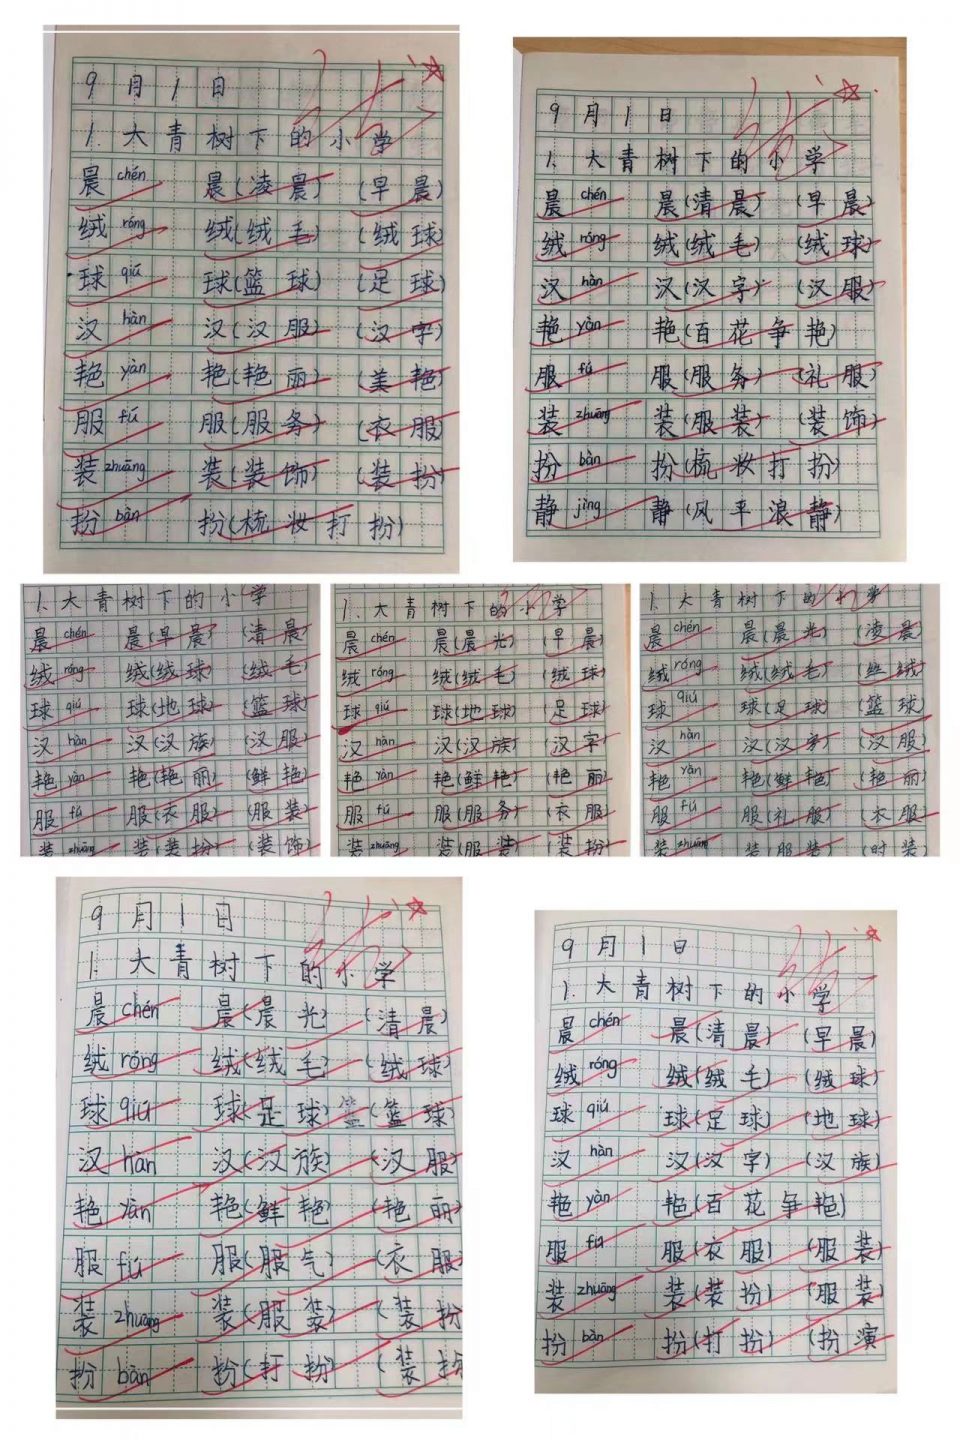 9月1日
1.大青树下的小学
晨 chén 晨(凌晨) (早晨)
绒 róng 绒(绒毛) (绒球)
球 qiú 球(篮球) (足球)
汉 hàn 汉(汉服) (汉字)
艳 yàn 艳(艳丽) (美艳)
服 fú 服(服务) (衣服)
装 zhuāng 装(装饰) (装扮)
扮 bàn 扮(梳妆打扮)
9月1日
1.大青树下的小学
晨 chén 晨(清晨) (早晨)
绒 róng 绒(绒毛) (绒球)
汉 hàn 汉(汉字) (汉服)
艳 yàn 艳(百花争艳)
服 fú 服(服务) (礼服)
装 zhuāng 装(服装) (装饰)
扮 bàn 扮(梳妆打扮)
静 jìng 静(风平浪静)
1.大青树下的小学
晨 chén 晨(早晨) (清晨)
绒 róng 绒(绒球) (绒毛)
球 qiú 球(地球) (篮球)
汉 hàn 汉(汉族) (汉服)
艳 yàn 艳(艳丽) (鲜艳)
服 fú 服(衣服) (服装)
装 zhuāng 装(装扮) (装饰)
1.大青树下的小学
晨 chén 晨(晨光) (早晨)
绒 róng 绒(绒毛) (绒球)
球 qiú 球(地球) (足球)
汉 hàn 汉(汉族) (汉字)
艳 yàn 艳(鲜艳) (艳丽)
服 fú 服(服务) (衣服)
装 zhuāng 装(服装) (装扮)
1.大青树下的小学
晨 chén 晨(晨光) (凌晨)
绒 róng 绒(绒毛) (丝绒)
球 qiú 球(足球) (篮球)
汉 hàn 汉(汉字) (汉服)
艳 yàn 艳(鲜艳) (艳丽)
服 fú 服(礼服) (衣服)
装 zhuāng 装(服装) (时装)
9月1日
1.大青树下的小学
晨 chén 晨(晨光) (清晨)
绒 róng 绒(绒毛) (绒球)
球 qiú 球(足球) 篮(篮球)
汉 hàn 汉(汉族) (汉服)
艳 yàn 艳(鲜艳) (艳丽)
服 fú 服(服气) (衣服)
装 zhuāng 装(服装) (装扮
扮 bàn 扮(打扮) (装扮
9月1日
1.大青树下的小学
晨 chén 晨(清晨) (早晨)
绒 róng 绒(绒毛) (绒球)
球 qiú 球(足球) (地球)
汉 hàn 汉(汉字) (汉族)
艳 yàn 艳(百花争艳)
服 fú 服(衣服) (服装)
装 zhuāng 装(装扮) (服装)
扮 bàn 扮(打扮) (扮演